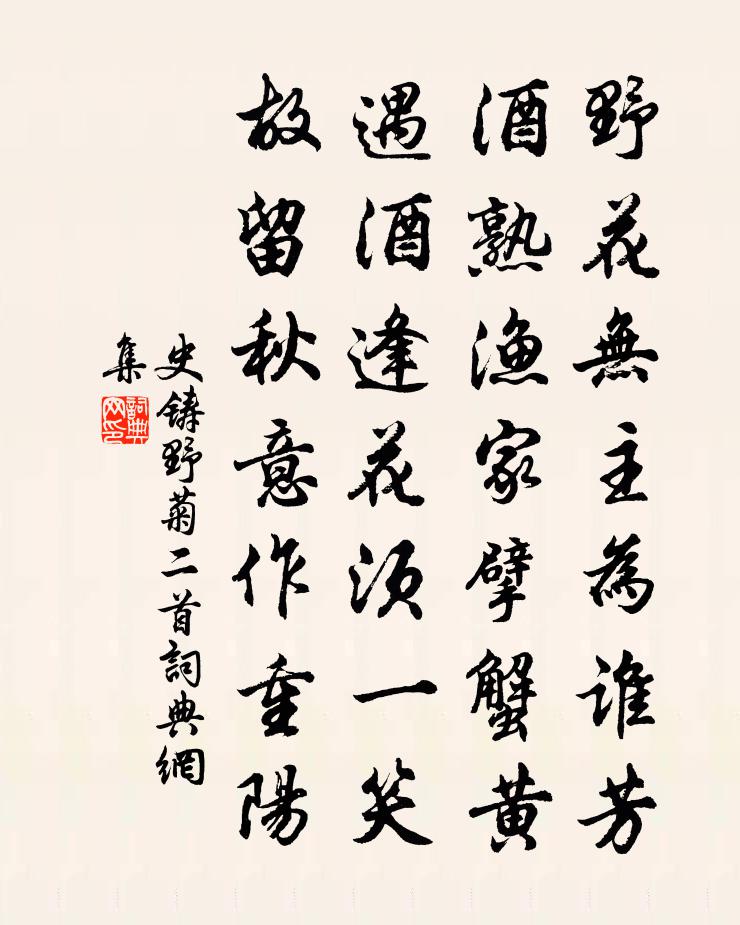 野花無主為誰芳
酒熟漁家擘蟹黃
遇酒逢花須一笑
故留秋意作重陽
史鑄野菊二首詞典網
集
詞典
网印